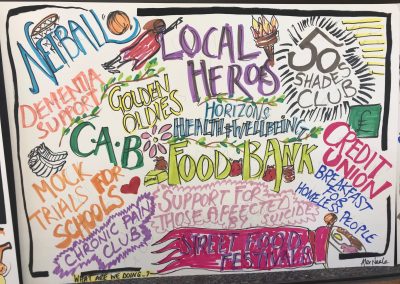 NETBALL
LOCAL
HEROS
50s
SHADES
CLUB
DEMENTIA
SUPPORT
GOLDEN
OLDIES
HORIZONS
HEALTH + WELLBEING
C.A.B
FOOD BANK
CREDIT
UNION
MOCK
TRIALS FOR
SCHOOLS
BREAKFAST
FOR
HOMELESS PEOPLE
SUPPORT FOR
THOSE AFFECTED
BY SUICIDES
CHRONIC PAIN
CLUB
STREET FOOD
FESTIVALS
WHAT ARE WE DOING..?